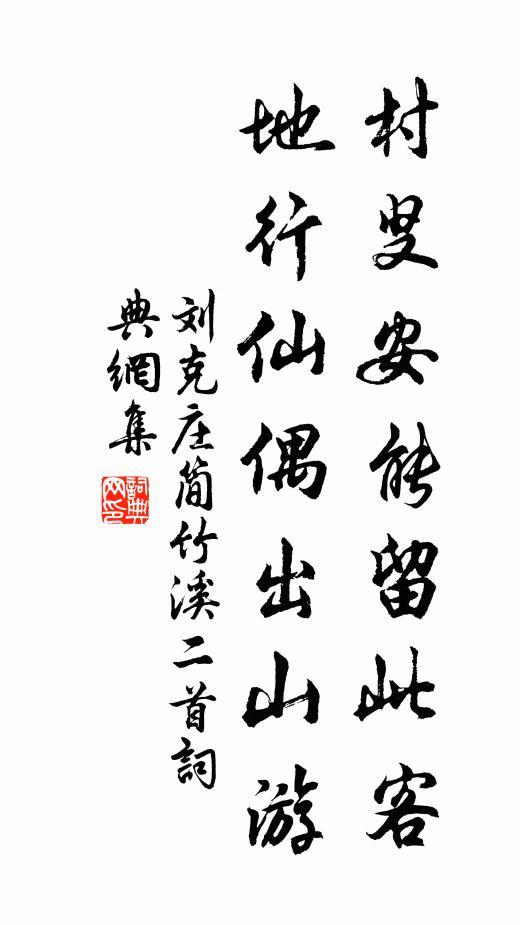 村叟安能留此客
地行仙偶出山游
刘克庄简竹溪二首詞
典網集
詞典網印